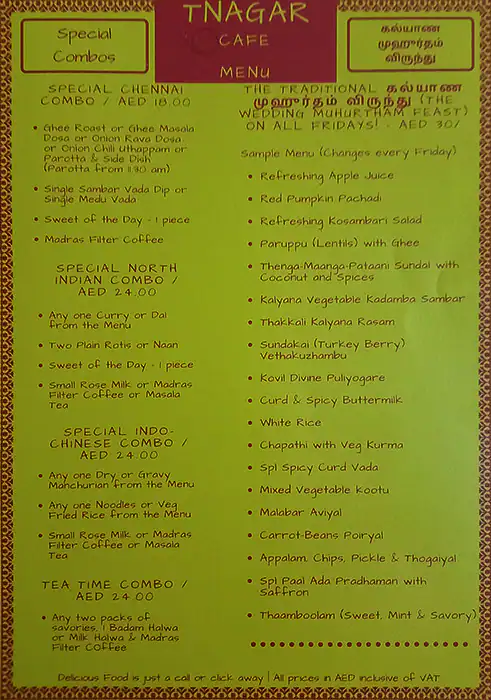 TNAGAR
CAFE
MENU
Special
Combos
SPECIAL CHENNAI
COMBO / AED 18.00
• Ghee Roast or Ghee Masala
Dosa or Onion Rava Dosa
or Onion Chili Uthappam or
Parotta & Side Dish
(Parotta from 11:30 am)
• Single Sambar Vada Dip or
Single Medu Vada
• Sweet of the Day - 1 piece
• Madras Filter Coffee
SPECIAL NORTH
INDIAN COMBO /
AED 24.00
• Any one Curry or Dal
from the Menu
• Two Plain Rotis or Naan
• Sweet of the Day - 1 piece
• Small Rose Milk or Madras
Filter Coffee or Masala
Tea
SPECIAL INDO-
CHINESE COMBO /
AED 24.00
• Any one Dry or Gravy
Manchurian from the Menu
• Any one Noodles or Veg
Fried Rice from the Menu
• Small Rose Milk or Madras
Filter Coffee or Masala
Tea
TEA TIME COMBO /
AED 24.00
• Any two packs of
savories, 1 Badam Halwa
or Milk Halwa & Madras
Filter COffee
கல்யாண
முஹூர்தம்
விருந்து
THE TRADITIONAL கல்யாண
முஹூர்தம் விருந்து (THE
WEDDING MUHURTHAM FEAST)
ON ALL FRIDAYS! - AED 30/-
Sample Menu (Changes every Friday)
• Refreshing Apple Juice
• Red Pumpkin Pachadi
• Refreshing Kosambari Salad
• Paruppu (Lentils) with Ghee
• Thenga-Maanga-Pataani Sundal with
Coconut and Spices
• Kalyana Vegetable Kadamba Sambar
• Thakkali Kalyana Rasam
• Sundakai (Turkey Berry)
Vethakuzhambu
• Kovil Divine Puliyogare
• Curd & Spicy Buttermilk
• White Rice
• Chapathi with Veg Kurma
• Spl Spicy Curd Vada
• Mixed Vegetable Kootu
• Malabar Aviyal
• Carrot-Beans Poiryal
• Appalam, Chips, Pickle & Thogaiyal
• Spl Paal Ada Pradhaman with
Saffron
• Thaamboolam (Sweet, Mint & Savory)
Delicious Food is just a call or click away | All prices in AED inclusive of VAT